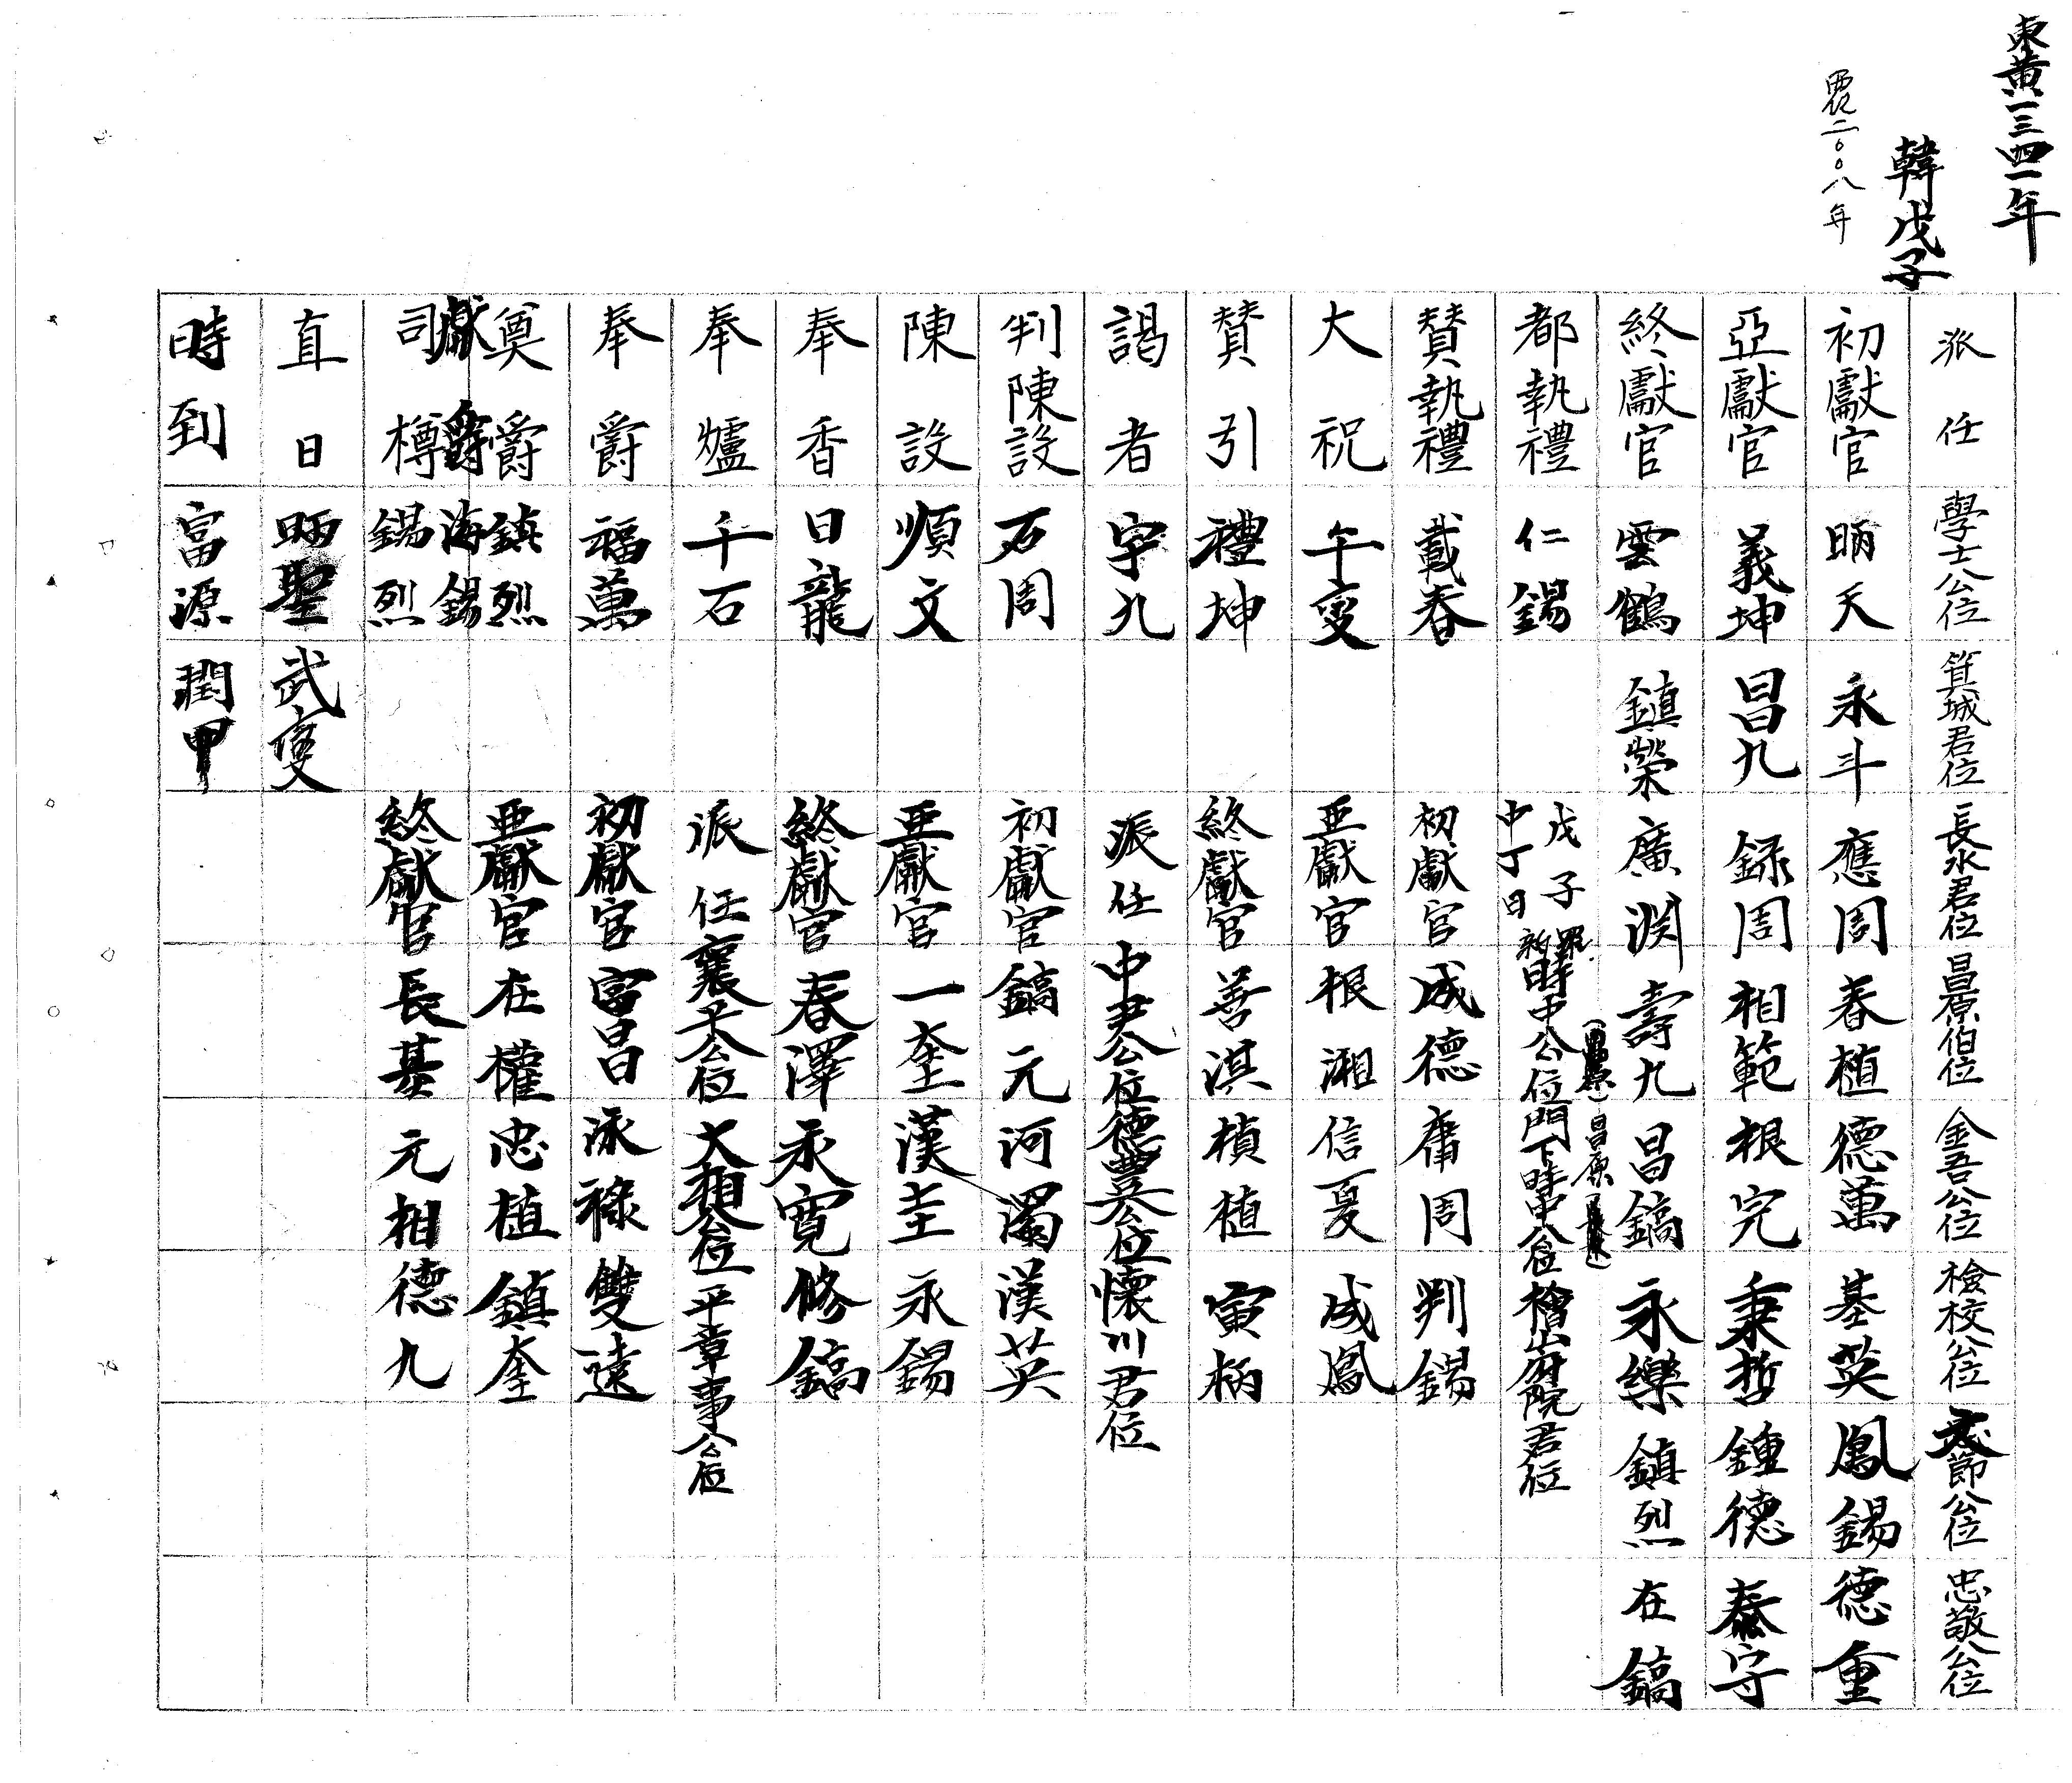 東黃一三四一年
韓戊子
西紀二〇〇八年
派任 學士公位 箕城君位 長水君位 昌原伯位 金吾公位 檢校公位 文節公位 忠敬公位
初獻官 昞天 永斗 應周 春植 德萬 基英 鳳錫 德重
亞獻官 義坤 昌九 録周 相範 根完 秉哲 鍾德 泰守
終獻官 雲鶴 鎮榮 廣渕 壽九 昌鎬 永樂 鎮烈 在鎬
都執禮 仁錫
戊子
中丁日
時中公位 門下時中公位 檜山府院君位
昌原
贊執禮 載春 初獻官 成德 庸周 判錫
大祝 午燮 亞獻官 根湘 信夏 成鳳
贊引 禮坤 終獻官 善淇 楨植 寅柄
謁者 宇九 派任 中尹公位 德豊公位 懷川君位
判陳設 石周 初獻官 鎬元 河濁 漢英
陳設 順文 亞獻官 一奎 漢圭 永錫
奉香 日龍 終獻官 春澤 永寬 修鎬
奉爐 千石 派任 襄平公位 大相公位 平章事公位
奉爵 福萬 初獻官 富昌 泳祿 雙遠
奠爵 鎮烈 亞獻官 在權 忠植 鎮奎
獻爵 海錫
司樽 錫烈 終獻官 長基 元相 德九
直日 昞聖 武燮
時到 富源 潤甲